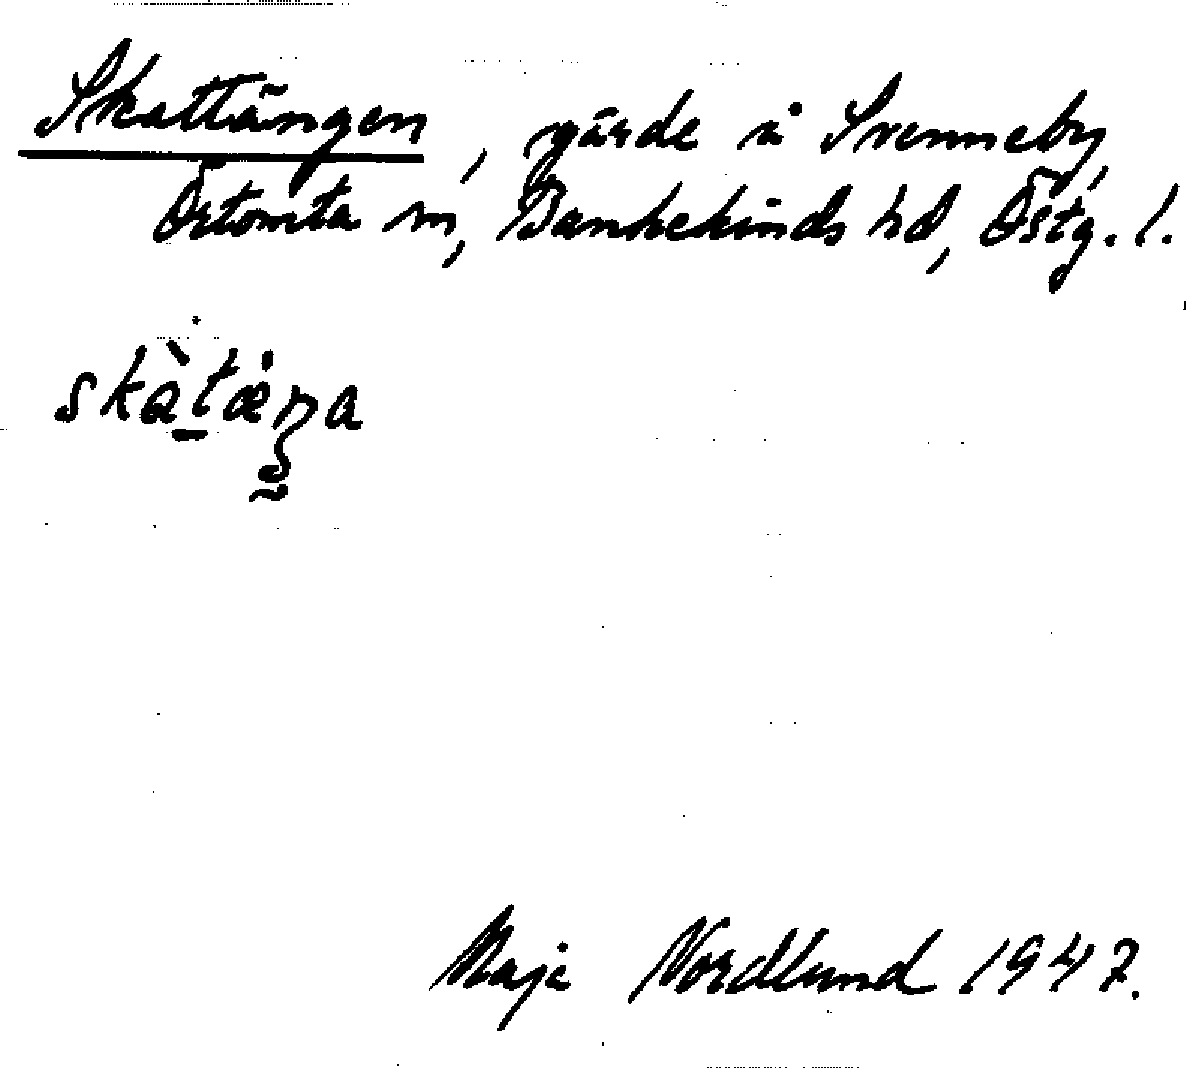 Skattängen, gärde i Svenneby,
Örtomta sn, Bankekinds hd, Östg. l.
skàtæŋa
Maja Nordlund 1947.